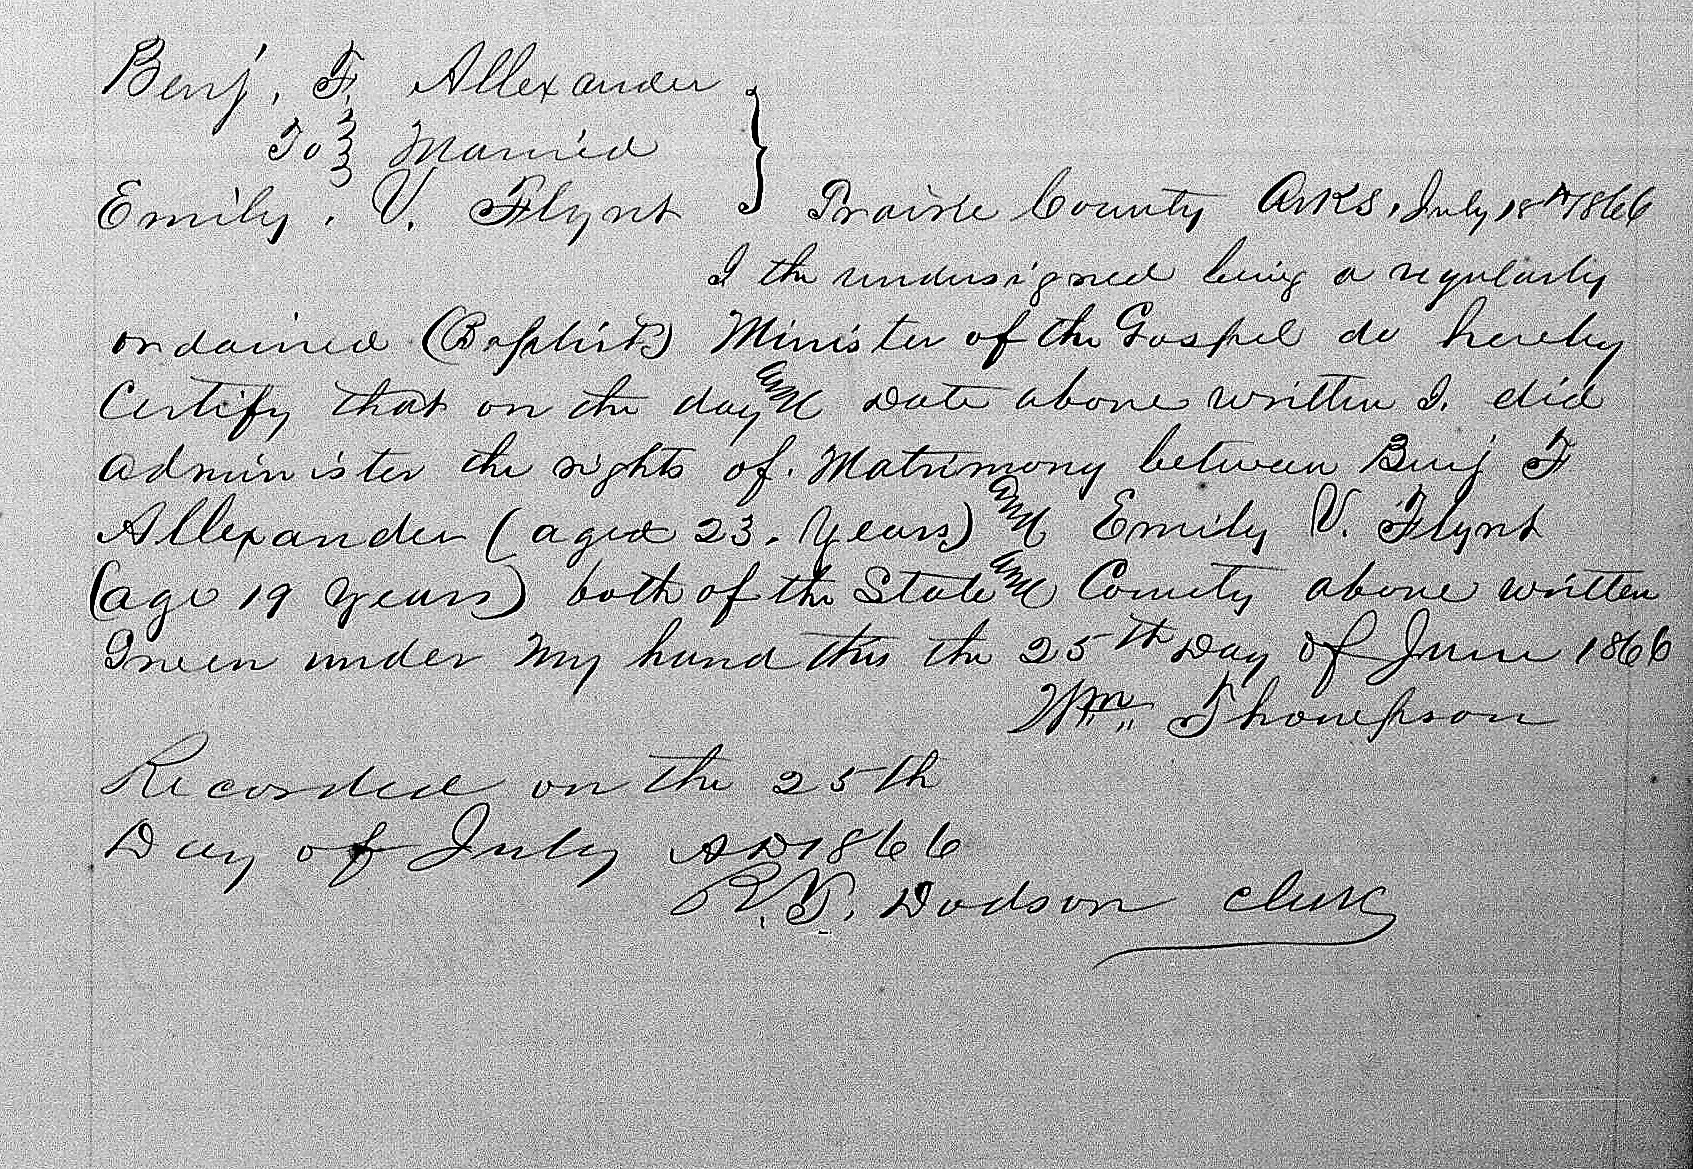 Benj. F. Allexander
To } Married
Emily. V. Flynt } Prairie County Arks, July 18th 1866
I the undersigned being a regularly
ordained (Baptist) Minister of the Gospel do hereby
Certify that on the day and Date above written I. did
administer the rights of. Matrimony between Benj F
Allexander (aged 23. Years) and Emily V. Flynt
(age 19 years) both of the State and County above written
Given under my hand this the 25th Day of June 1866
Wm. Thompson
Recorded on the 25th
Day of July AD 1866
R. T. Dodson Clerk